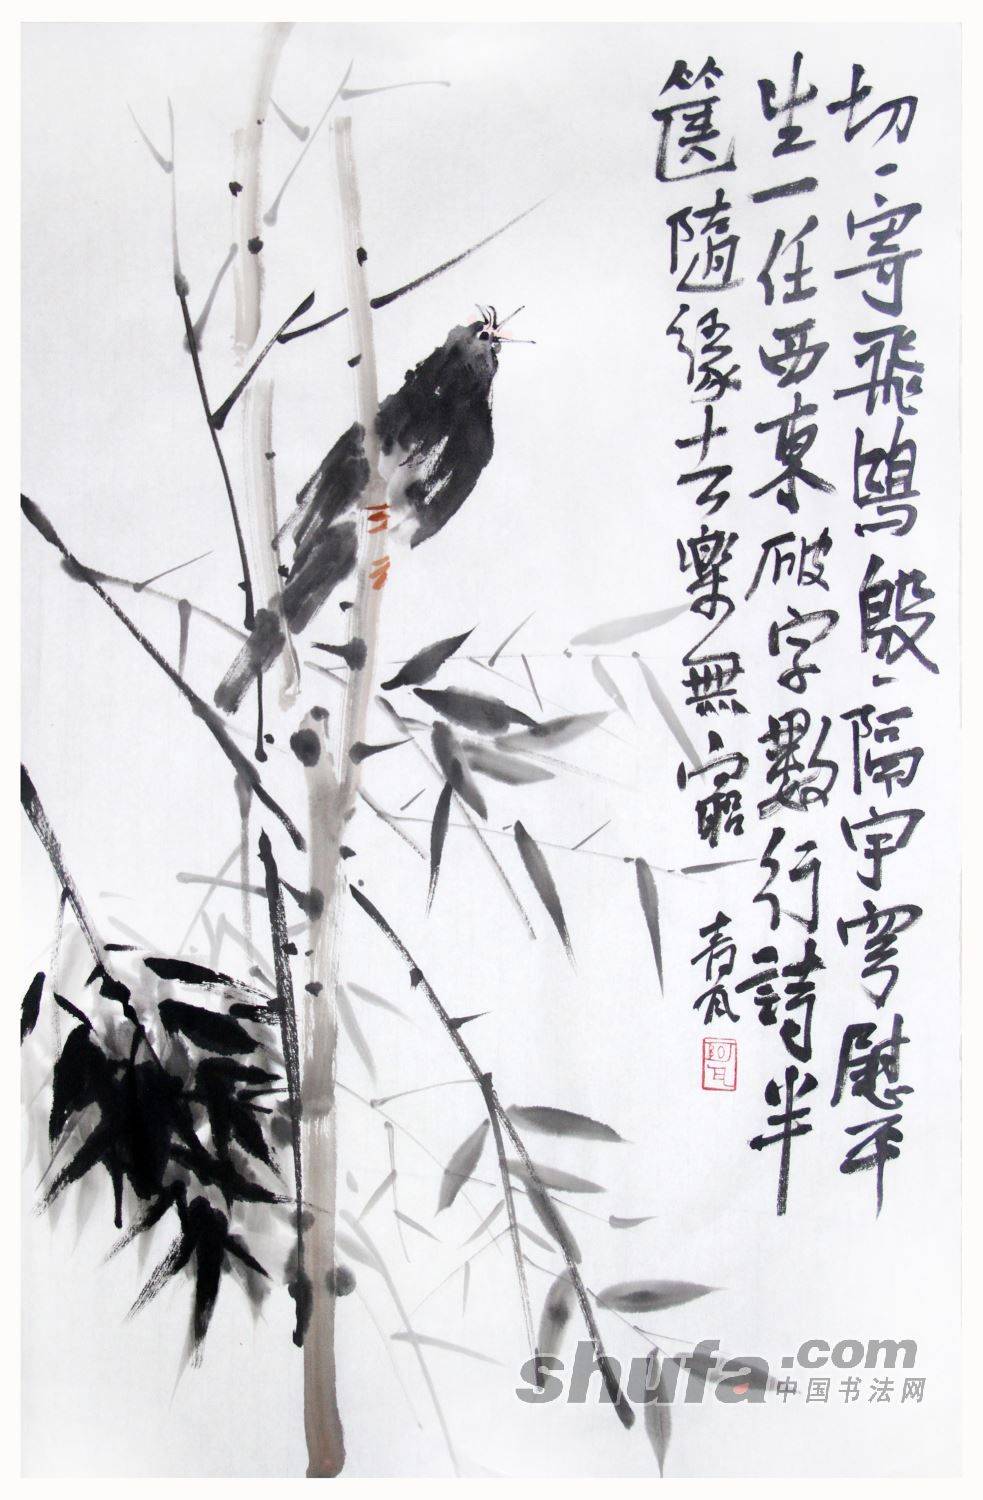 切、寄飛鴎殷、隔宇穹慰平
生一任西東破字數行詩半
篋隨緣去樂無窮
青瓦
阿瓦
shufa.com
中国书法网